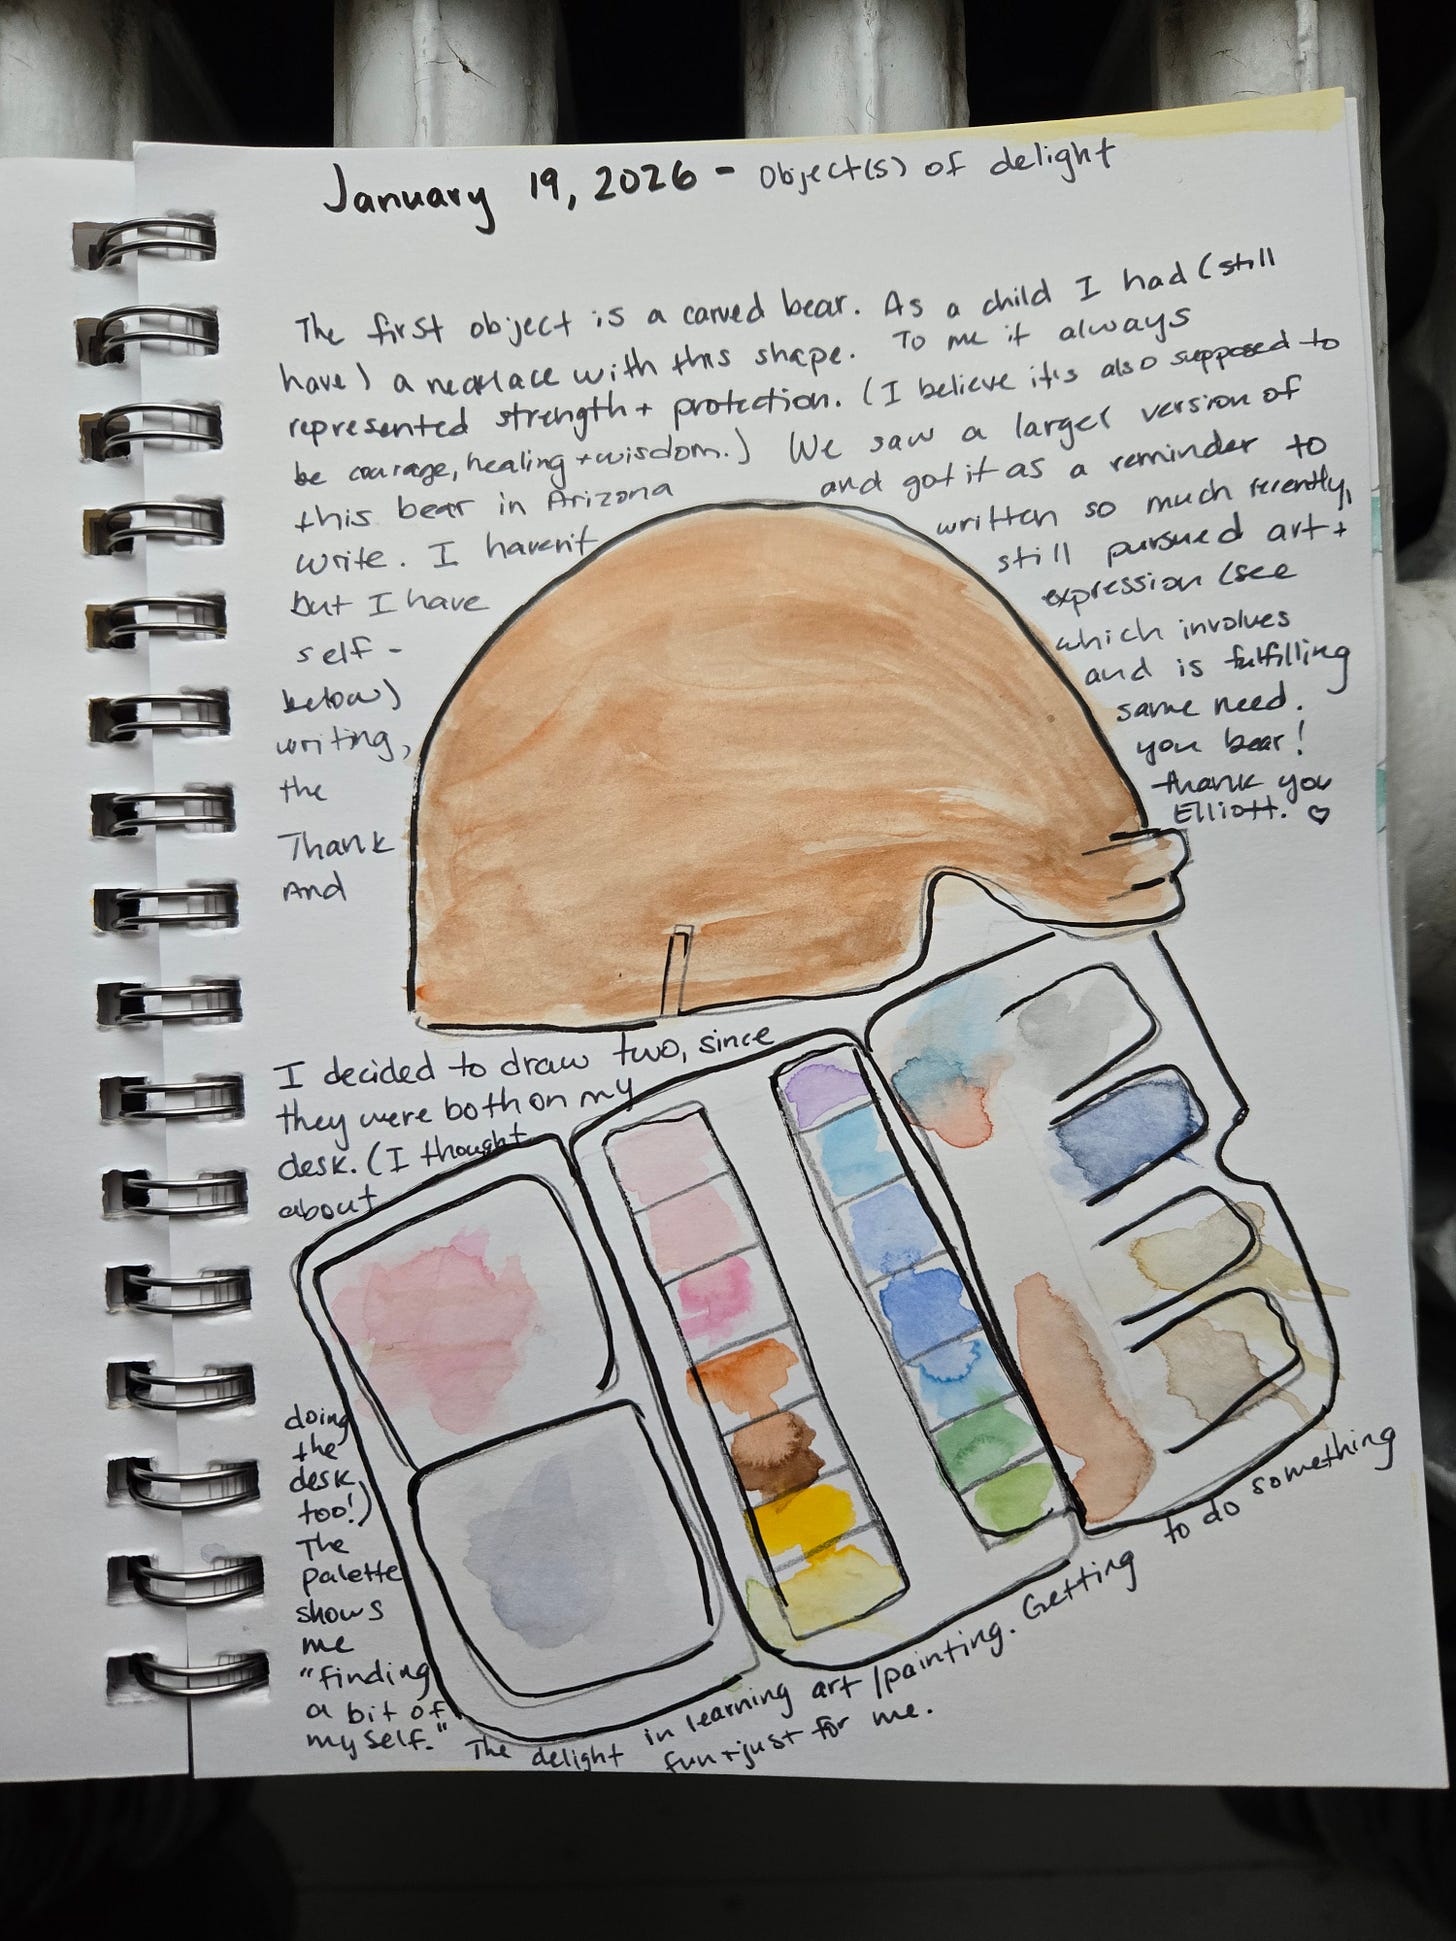 January 19, 2026 - Object(s) of delight
The first object is a carved bear. As a child I had (still
have) a necklace with this shape. To me it always
represented strength + protection. (I believe it's also supposed to
be courage, healing + wisdom.) We saw a larger version of
this bear in Arizona and got it as a reminder to
write. I haven't written so much recently,
but I have still pursued art +
self- expression (see
below) which involves
writing, and is fulfilling
the same need.
Thank you bear!
And thank you
Elliott. ♡
I decided to draw two, since
they were both on my
desk. (I thought
about
doing
the
desk
too!)
The
palette
shows
me
"finding
a bit of
myself."
The delight in learning art/painting. Getting to do something
fun + just for me.